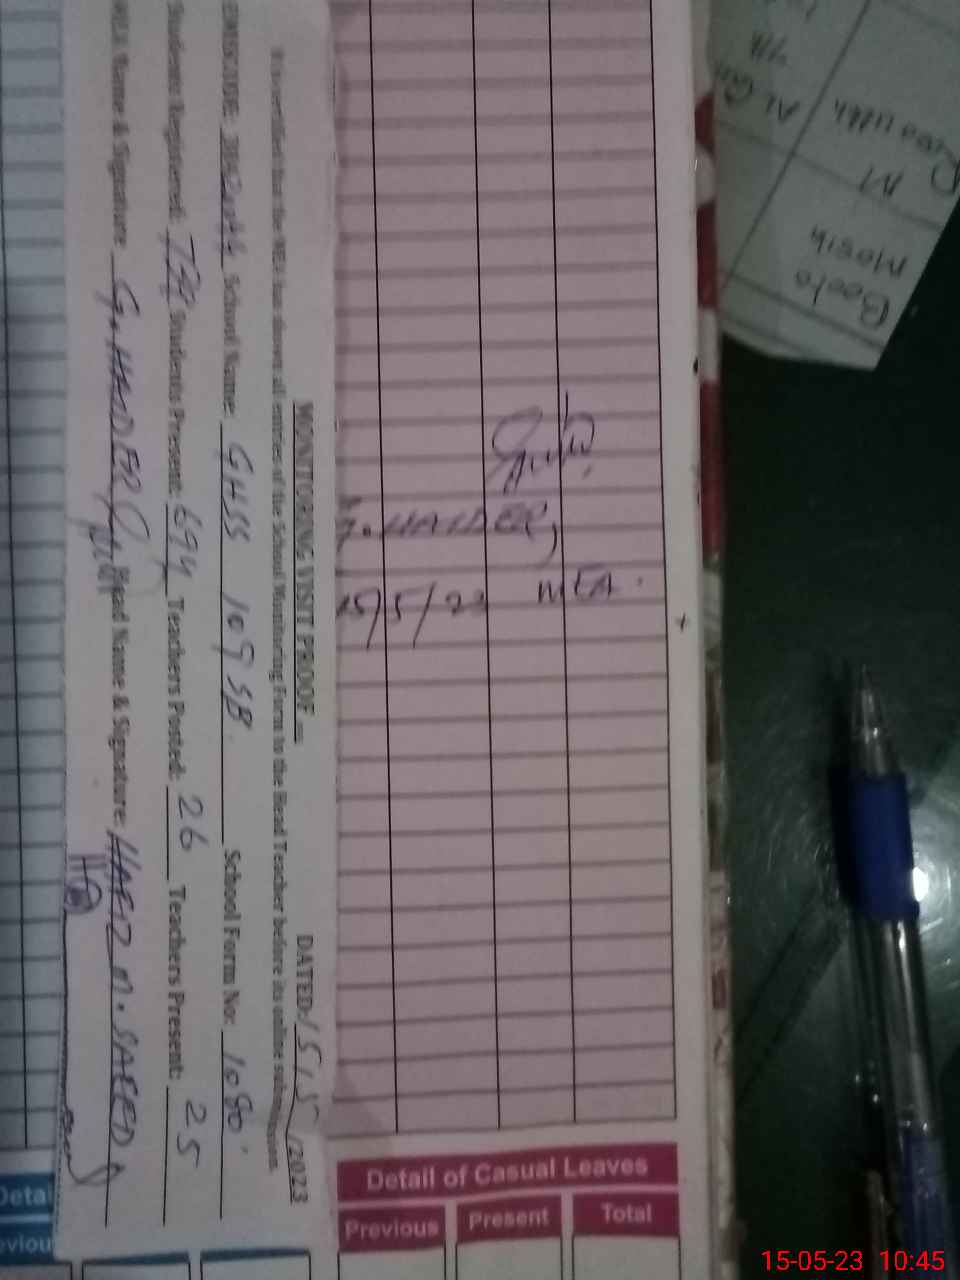 MONITORING VISIT PROOF DATED: 15/5/2023
It is certified that the MEA has shown all entries of the School Monitoring Form to the Head Teacher before its online submission.
School Name: GHSS 109 SB. School Form No: 1080
Students Registered: Students Present: 694 Teachers Posted: 26 Teachers Present: 25
MEA Name & Signature G. HAIDER Head Name & Signature: M. SAEED
G. HAIDER,
MEA.
15/5/23
Detail of Casual Leaves
Previous Present Total
Detai
eviou
Boota
Masih
M
15-05-23 10:45